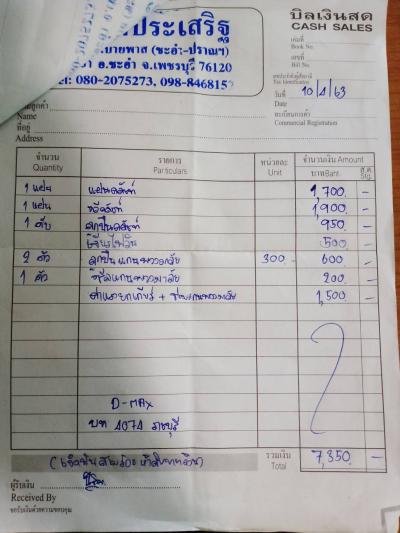 ประเสริฐ
บิลเงินสด
CASH SALES
.บายพาส (ชะอำ-ปราณฯ)
อ.ชะอำ จ.เพชรบุรี 76120
: 080-2075273, 098-846815
เล่มที่
Book No.
เลขที่
Bill No.
เลขประจำตัวผู้เสียภาษี
Tax Identification
วันที่ 10/4/63
Date
ลูกค้า
Name
ทะเบียนการค้า
Commercial Registration
ที่อยู่
Address
จำนวน รายการ หน่วยละ จำนวนเงิน Amount
Quantity Particulars Unit บาท Baht ส.ต. Stg.
1 แผ่น แผ่นคลัทช์ 1,700 -
1 แผ่น หวีคลัทช์ 1,900 -
1 ตับ ลูกปืนคลัทช์ 950 -
500 -
2 ตัว ลูกปืน 300 - 600 -
1 ตัว 200 -
ค่าแรงยกเกียร์ + 1,500 -
D-MAX
บท 4074 ราชบุรี
(เจ็ดพันสามร้อยห้าสิบบาทถ้วน)
รวมเงิน
Total
7,350 -
ผู้รับเงิน
Received By
ขอรับเงินด้วยความขอบคุณ